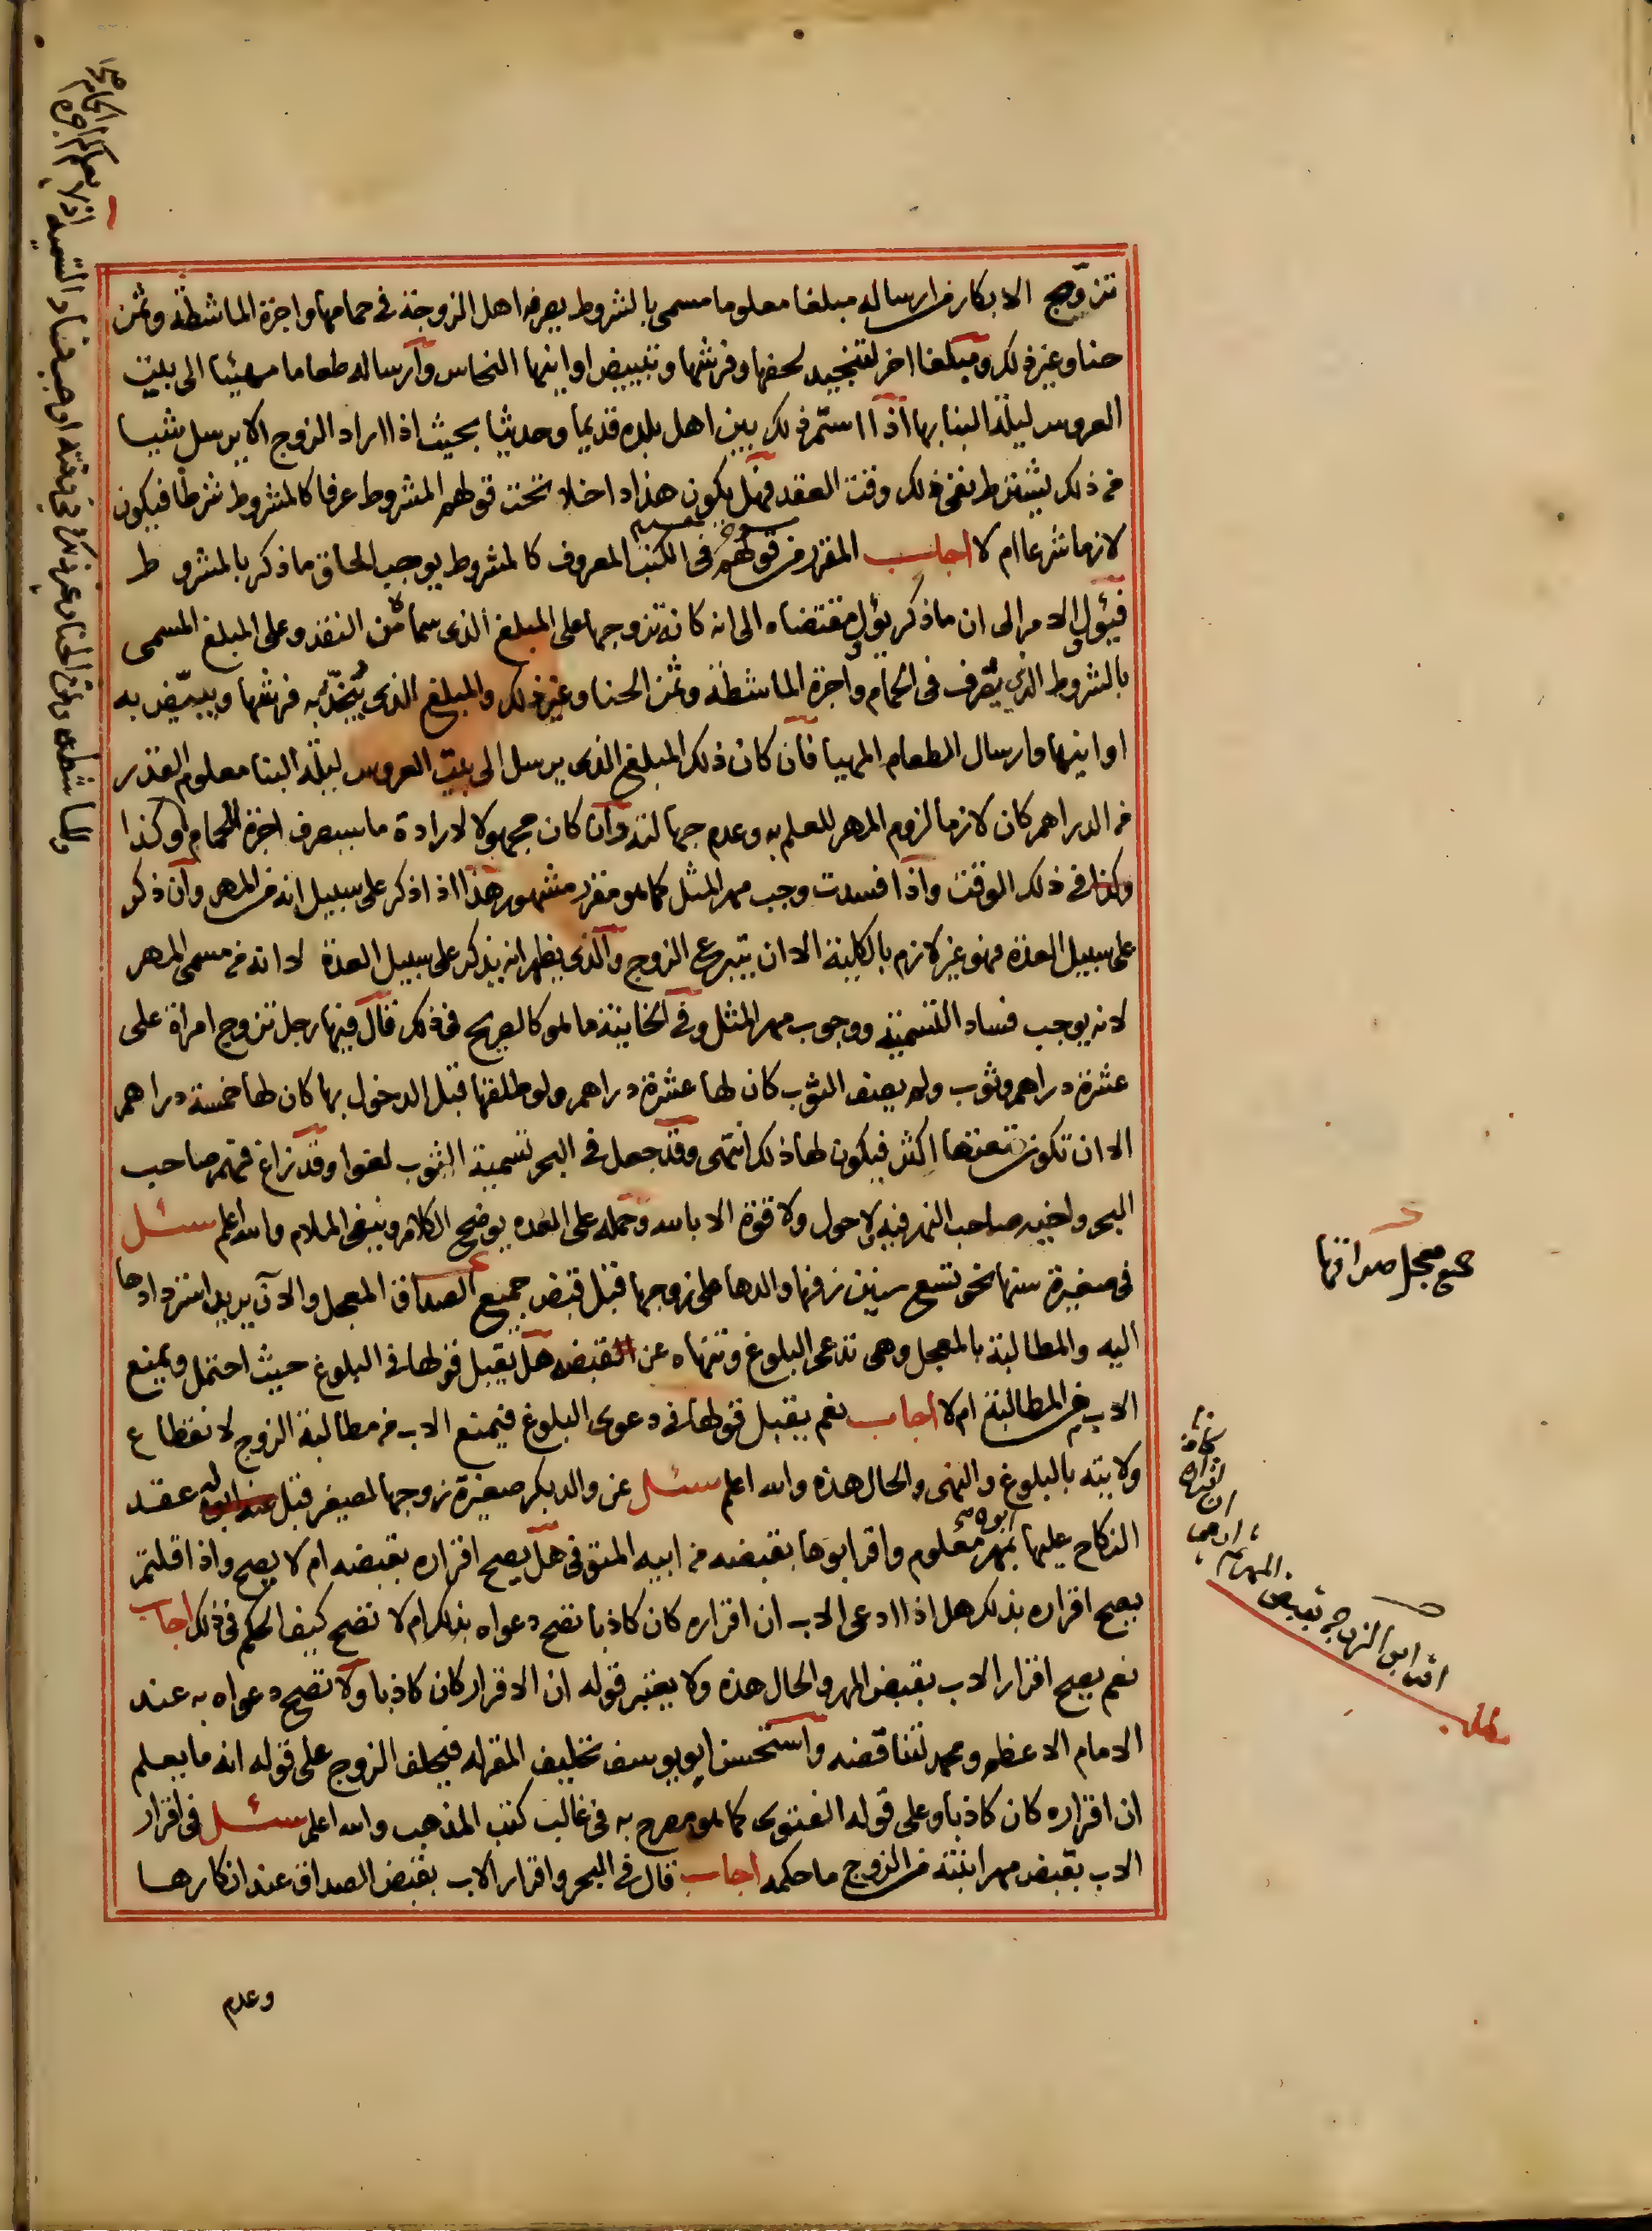 تزوج الابكار من ارساله مبلغا معلوما مسمى بالشروط يصرفه اهل الزوجة في حمامها واجرة الماشطة وثمن
حنا وغير ذلك ومبلغا اخر لتنجيد لحفها وفرشها وتبييض اوانيها النحاس وارساله طعاما مهيئا الى بيت
العروس ليلة البنا بها اذا استمر ذلك بين اهل بلده قديما وحديثا بحيث اذا اراد الزوج الا يرسل شيا
من ذلك يشترط نفى ذلك وقت العقد فهل يكون هذا داخلا تحت قولهم المشروط عرفا كالمشروط شرطا فيكون
لازما شرعا ام لا اجاب المقرر من قولهم في الكتب المعروف كالمشروط يوجب الحاق ما ذكر بالمشروط
فيئول الامر الى ان ما ذكر يؤل مقتضاه الى انه كانه تزوجها على المبلغ الذى سماه من النقد وعلى المبلغ المسمى
بالشروط الذى يصرف في الحمام واجرة الماشطة وثمن الحنا وغير ذلك والمبلغ الذى ينجد به فرشها ويبيض به
اوانيها وارسال الطعام المهيا فان كان ذلك المبلغ الذى يرسل الى بيت العروس ليلة البنا معلوم القدر
من الدراهم كان لازما لزوم المهر للعلم به وعدم جهالته وان كان مجهولا لارادة ما سيصرف اجرة الحمام وكذا
وكذا في ذلك الوقت واذا فسدت وجب مهر المثل كما هو مقرر مشهور هذا اذا ذكر على سبيل انه من المهر وان ذكر
على سبيل العدة فهو غير لازم بالكلية الا ان يتبرع الزوج والذى يظهر انه يذكر على سبيل العدة لا انه من مسمى المهر
لانه يوجب فساد التسمية ووجوب مهر المثل وفي الخانية ما هو كالصريح في ذلك قال فيها رجل تزوج امراة على
عشرة دراهم وثوب ولم يصف الثوب كان لها عشرة دراهم ولو طلقها قبل الدخول بها كان لها خمسة دراهم
الا ان تكون متعتها اكثر فيكون لها ذلك انتهى وقد جعل في البحر تسمية الثوب لغوا وقد زاغ فهم صاحب
البحر واخيه صاحب النهر فيه ولا حول ولا قوة الا بالله وحمله على العده يوضح الكلام وينفي الملام والله اعلم سئل
في صغيرة سنها نحو تسع سنين زفها والدها على زوجها قبل قبض جميع الصداق المعجل والآن يريد استردادها
اليه والمطالبة بالمعجل وهي تدعى البلوغ وتنهاه عن القبض هل يقبل قولها في البلوغ حيث احتمل ويمنع
الاب من المطالبة ام لا اجاب نعم يقبل قولها في دعوى البلوغ فيمنع الاب من مطالبة الزوج لانقطاع
ولايته بالبلوغ والنهى والحال هذه والله اعلم سئل عن والد بكر صغيرة زوجها لصغير قبل عنه ابوه له عقد
النكاح عليها بمهر معلوم واقر ابوها بقبضه من ابيه المتوفى هل يصح اقراره بقبضه ام لا يصح واذا قلتم
يصح اقراره بذلك هل اذا ادعى الاب ان اقراره كان كاذبا تصح دعواه بذلك ام لا تصح كيف الحكم في ذلك اجاب
نعم يصح اقرار الاب بقبض المهر والحال هذه ولا يعتبر قوله ان الاقرار كان كاذبا ولا تصح دعواه به عند
الامام الاعظم ومحمد لتناقضه واستحسن ابو يوسف تحليف المقر له فيحلف الزوج على قوله انه ما يعلم
ان اقراره كان كاذبا وعلى قوله الفتوى كما هو مصرح به في غالب كتب المذهب والله اعلم سئل في اقرار
الاب بقبض مهر ابنته من الزوج ما حكمه اجاب قال في البحر واقرار الاب بقبض الصداق عند انكارها
وعدم
معجل صداقها
اقر ابو الزوجة بقبض المهر ثم ادعى
ان اقراره
كان كاذبا
مطلب